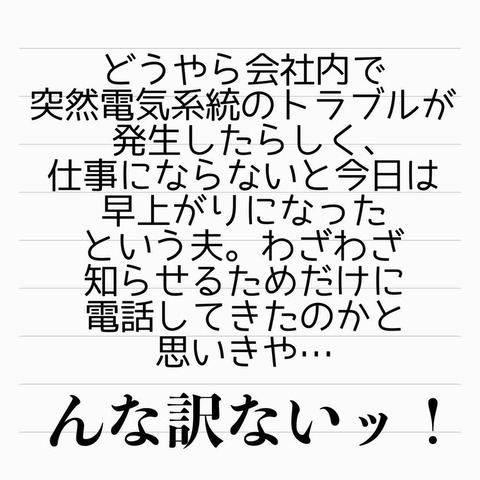 どうやら会社内で
突然電気系統のトラブルが
発生したらしく、
仕事にならないと今日は
早上がりになった
という夫。わざわざ
知らせるためだけに
電話してきたのかと
思いきや…
んな訳ないッ！